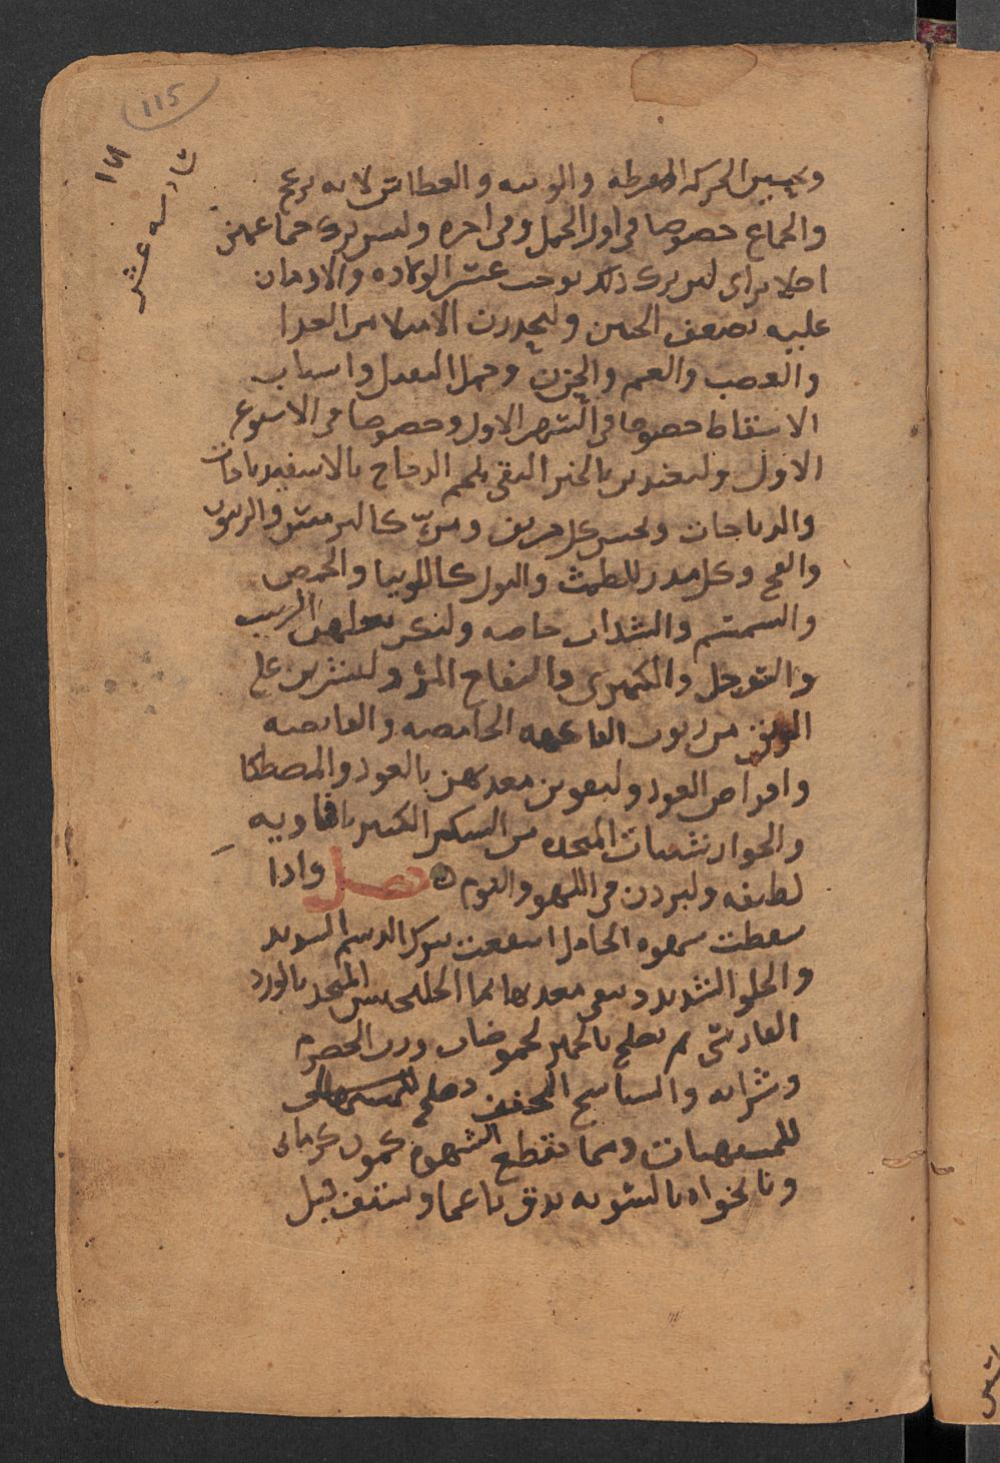 115
١٦
سادسه عشر
ويجتنبن الحركه المفرطه والوثبه والعطاس لانه يزعج
والجماع خصوصا في اول الحمل وفي اخره وليس يترك جماعهن
اصلا فان ترك ذلك يوجب عسر الولاده والادمان
عليه يضعف الجنين وليحذرن الامتلا من الغدا
والغضب والغم والحزن وحمل الثقيل واسباب
الاسقاط خصوصا في الشهر الاول وخصوصا في الاسبوع
الاول وليغتذين بالخبز النقي بلحم الدجاج بالاسفيدباجات
والزيرباجات ويجتنبن كل حريف ومر كالترمس والزيتون
والفج وكل مدر للطمث والبول كاللوبيا والحمص
والسمسم والسداب خاصه وليكن نقلهن الزبيب
والسفرجل والكمثرى والتفاح المز وليشربن على
الريق من ربوب الفاكهه الحامضه والقابضه
واقراص العود وليقوين معدهن بالعود والمصطكا
والجوارشنات المتخذه من السكر الكثير بافاويه
لطيفه وليزدن في اللهو والنوم فصل واذا
سقطت شهوه الحامل انتفعت بترك الدسم الشديد
والحلو الشديد وتنقى معدتها بما الجلنجبين المتخذ بالورد
الفارسي ثم تصلح بالخمر لحموضات ورب الحصرم
وشرابه والسفايح المجفف
للمشتهيات ومما يقطع الشهوه كمون كرماني
ونانخواه بالسويه يدق ناعما ويستف قبل